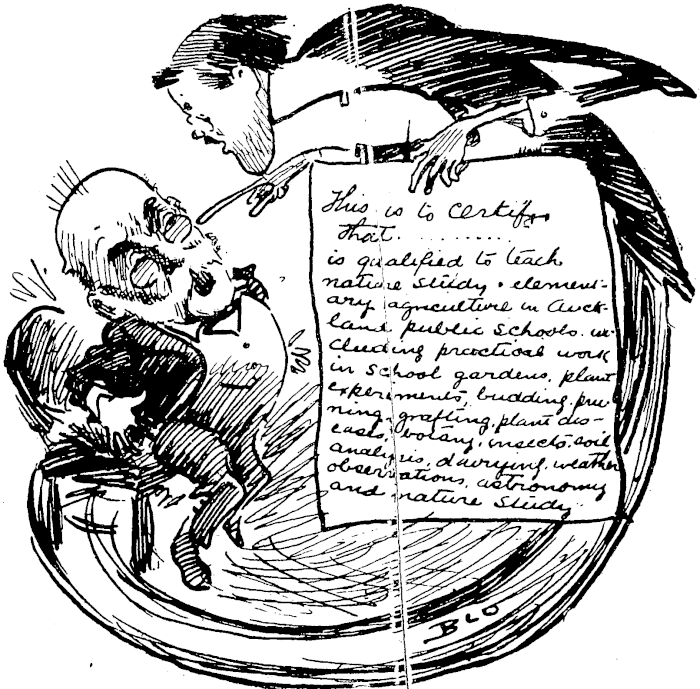 This is to certify
that..........
is qualified to teach
nature study & element-
ary agriculture in Auck-
land public schools. in-
cluding practical work
in school gardens, plant
experiments, budding, pru
ning, grafting, plant dis-
eases, botany, insects, soil
analysis, dairying, weather
observations, astronomy
and nature study.
BLO